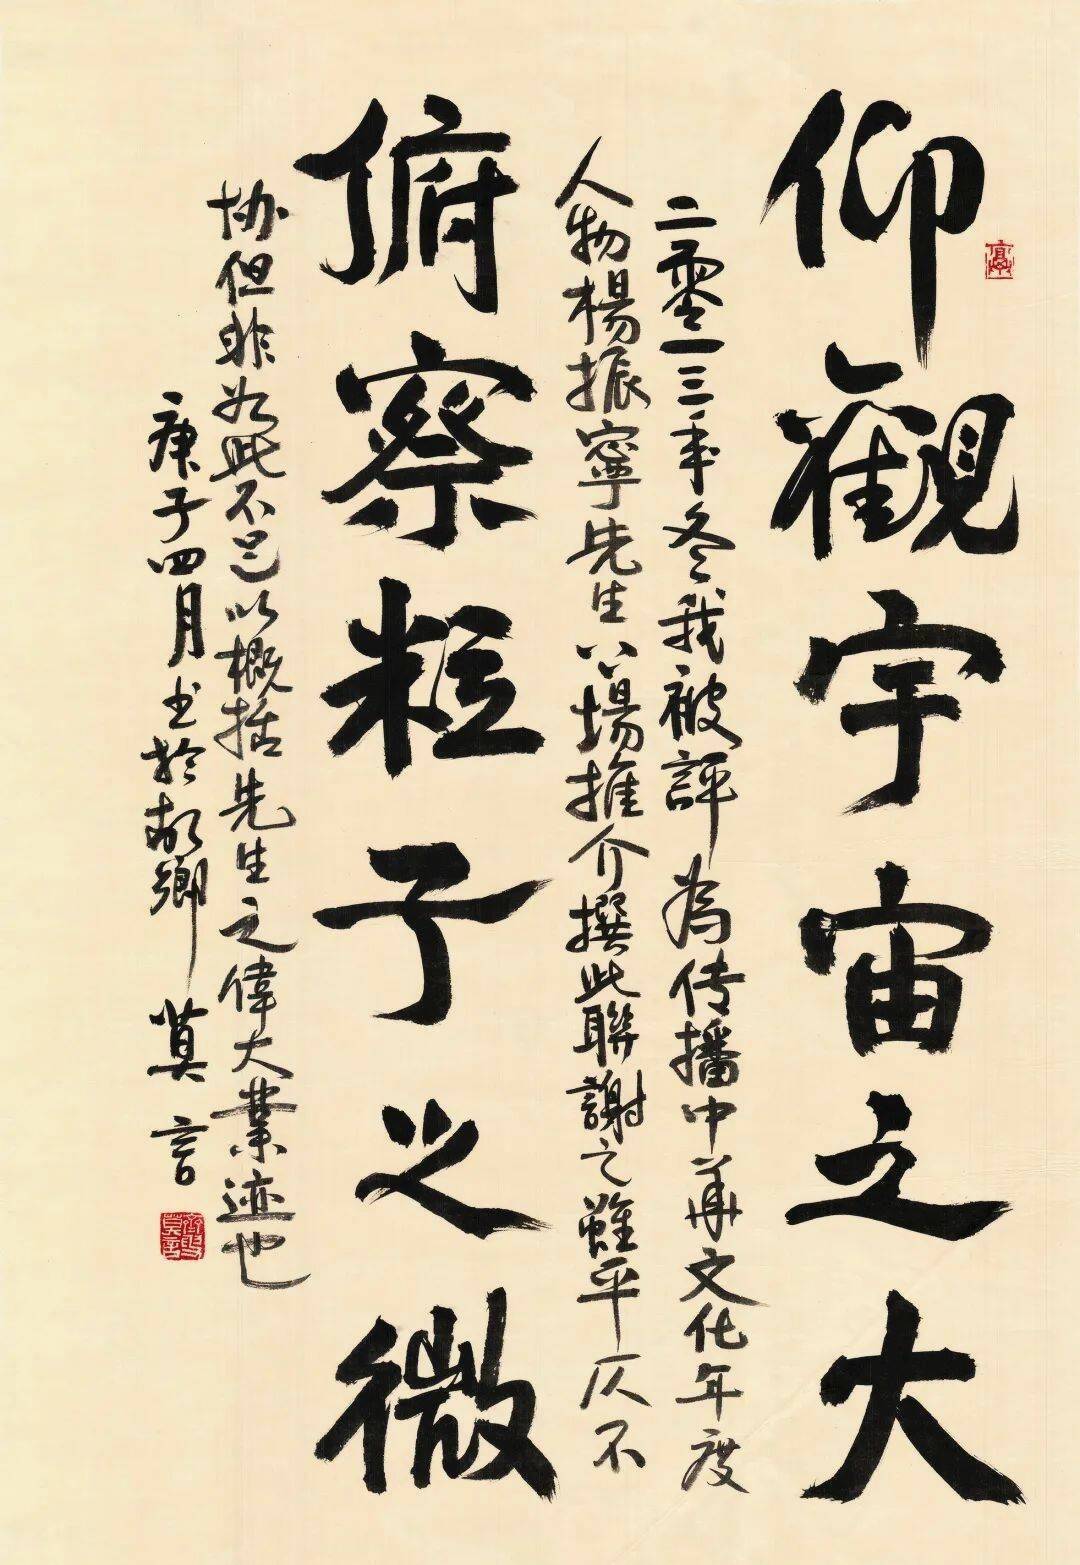 仰觀宇宙之大
二零一三年冬我被評為传播中華文化年度
人物楊振寧先生場推介撰此聯謝之雖平仄不
俯察粒子之微
协但非如此不足以概括先生之偉大業迹也
庚子四月书於故鄉 莫言